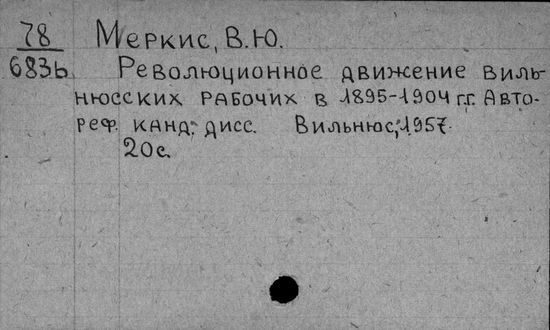 78 Меркис, В.Ю.
6836 Революционное движение виль-
нюсских рабочих в 1895-1904 г.г. Авто-
реф. канд. дисс. Вильнюс, 1957.
20 с.